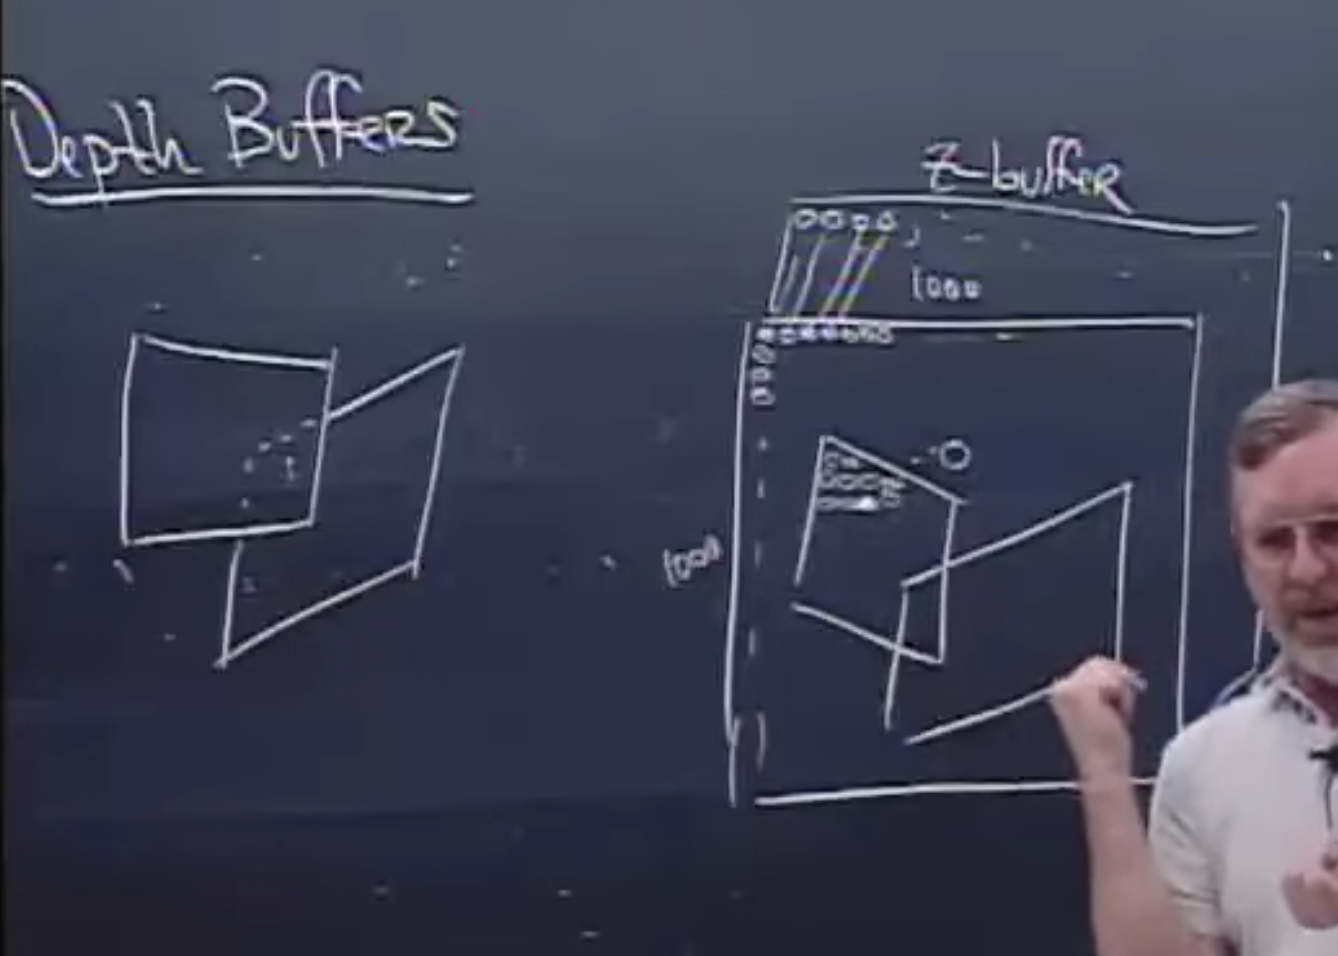 Depth Buffers
z-buffer
1000
1000